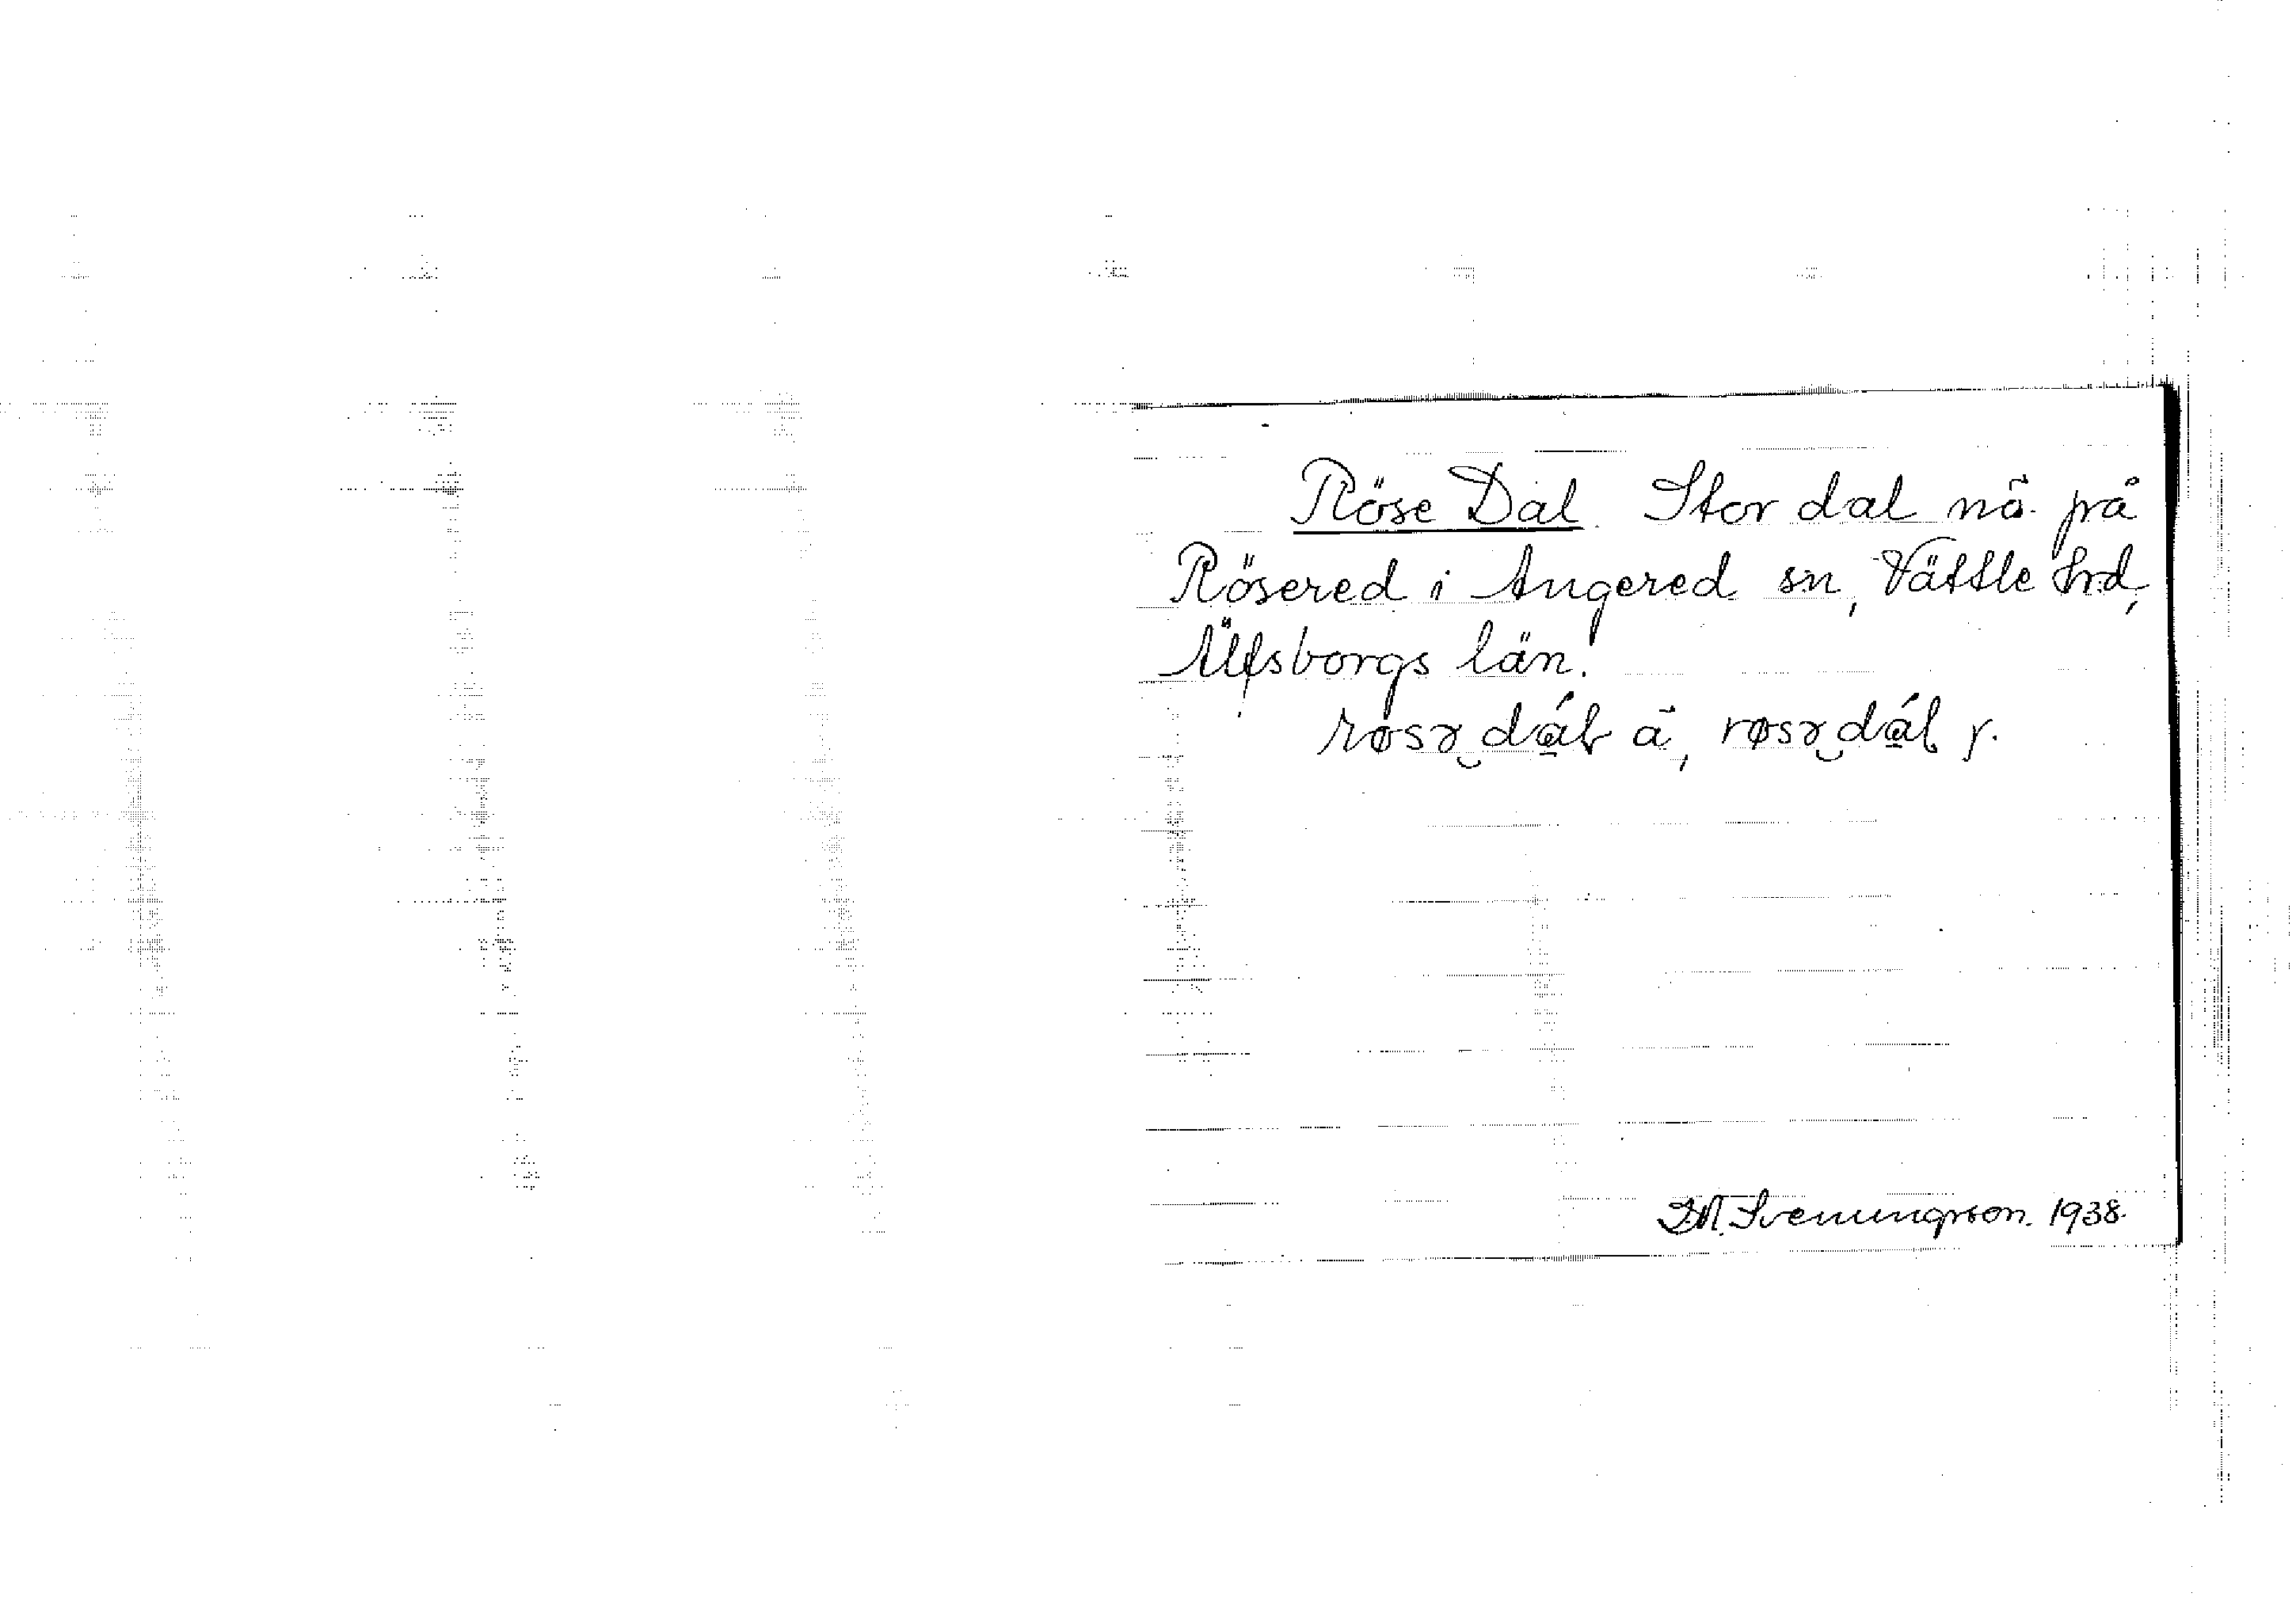 Röse Dal. Stor dal nö på
Rösered i Angered sn, Vättle hrd,
Älfsborgs län.
røsə dál ä, røsə dál y.
Svenungsson. 1938.